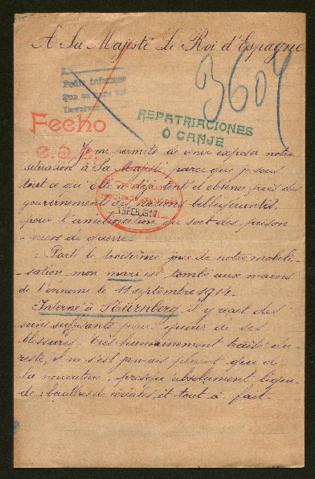 A Sa Majesté Le Roi d'Espagne
3604
Pedir informes
Que se
Devolver
REPATRIACIONES
O CANJE
Fecho
e.a.
Je me permets de venir exposer notre
situation à Sa Majesté parce que je sais
tout ce qu'elle a déjà tenté et obtenu près des
gouvernements des nations belligérantes
pour l'amélioration du sort des prison
niers de guerre.
Parti le troisième jour de notre mobili-
sation mon mari est tombé aux mains
de l'ennemi le 11 septembre 1914.
Interné à Nürnberg il y reçut des
soins suffisants pour guérir de ses
blessures. Très humainement traité du
reste, il ne s'est jamais plaint que de
la nourriture, presque absolument liqui-
de et tout à fait